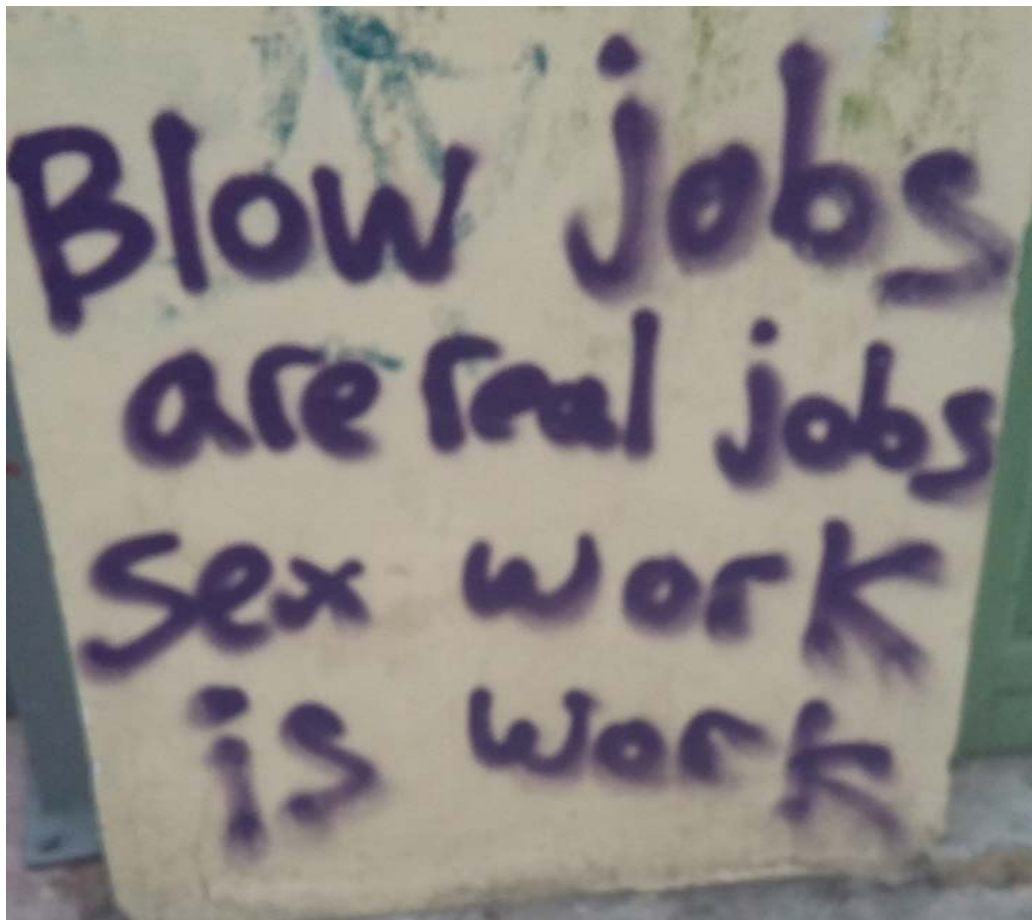 Blow jobs
are real jobs
sex work
is work